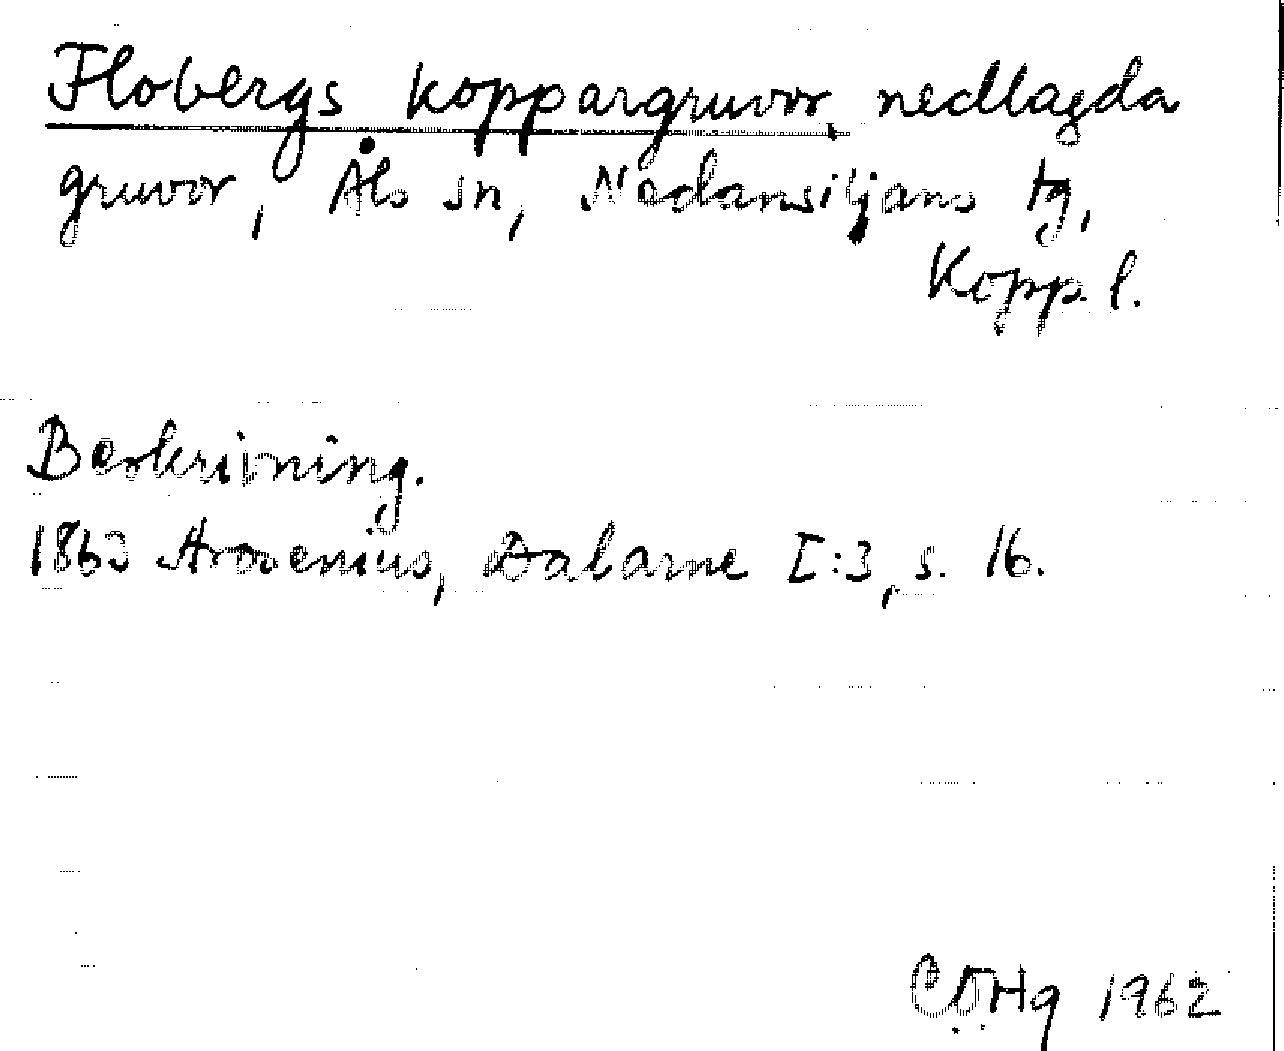 Flobergs koppargruvor nedlagda
gruvor, Åls sn, Nedansiljans tg,
Kopp. l.
Beskrivning.
1863 Arosenius, Dalarne I:3, s. 16.
1962